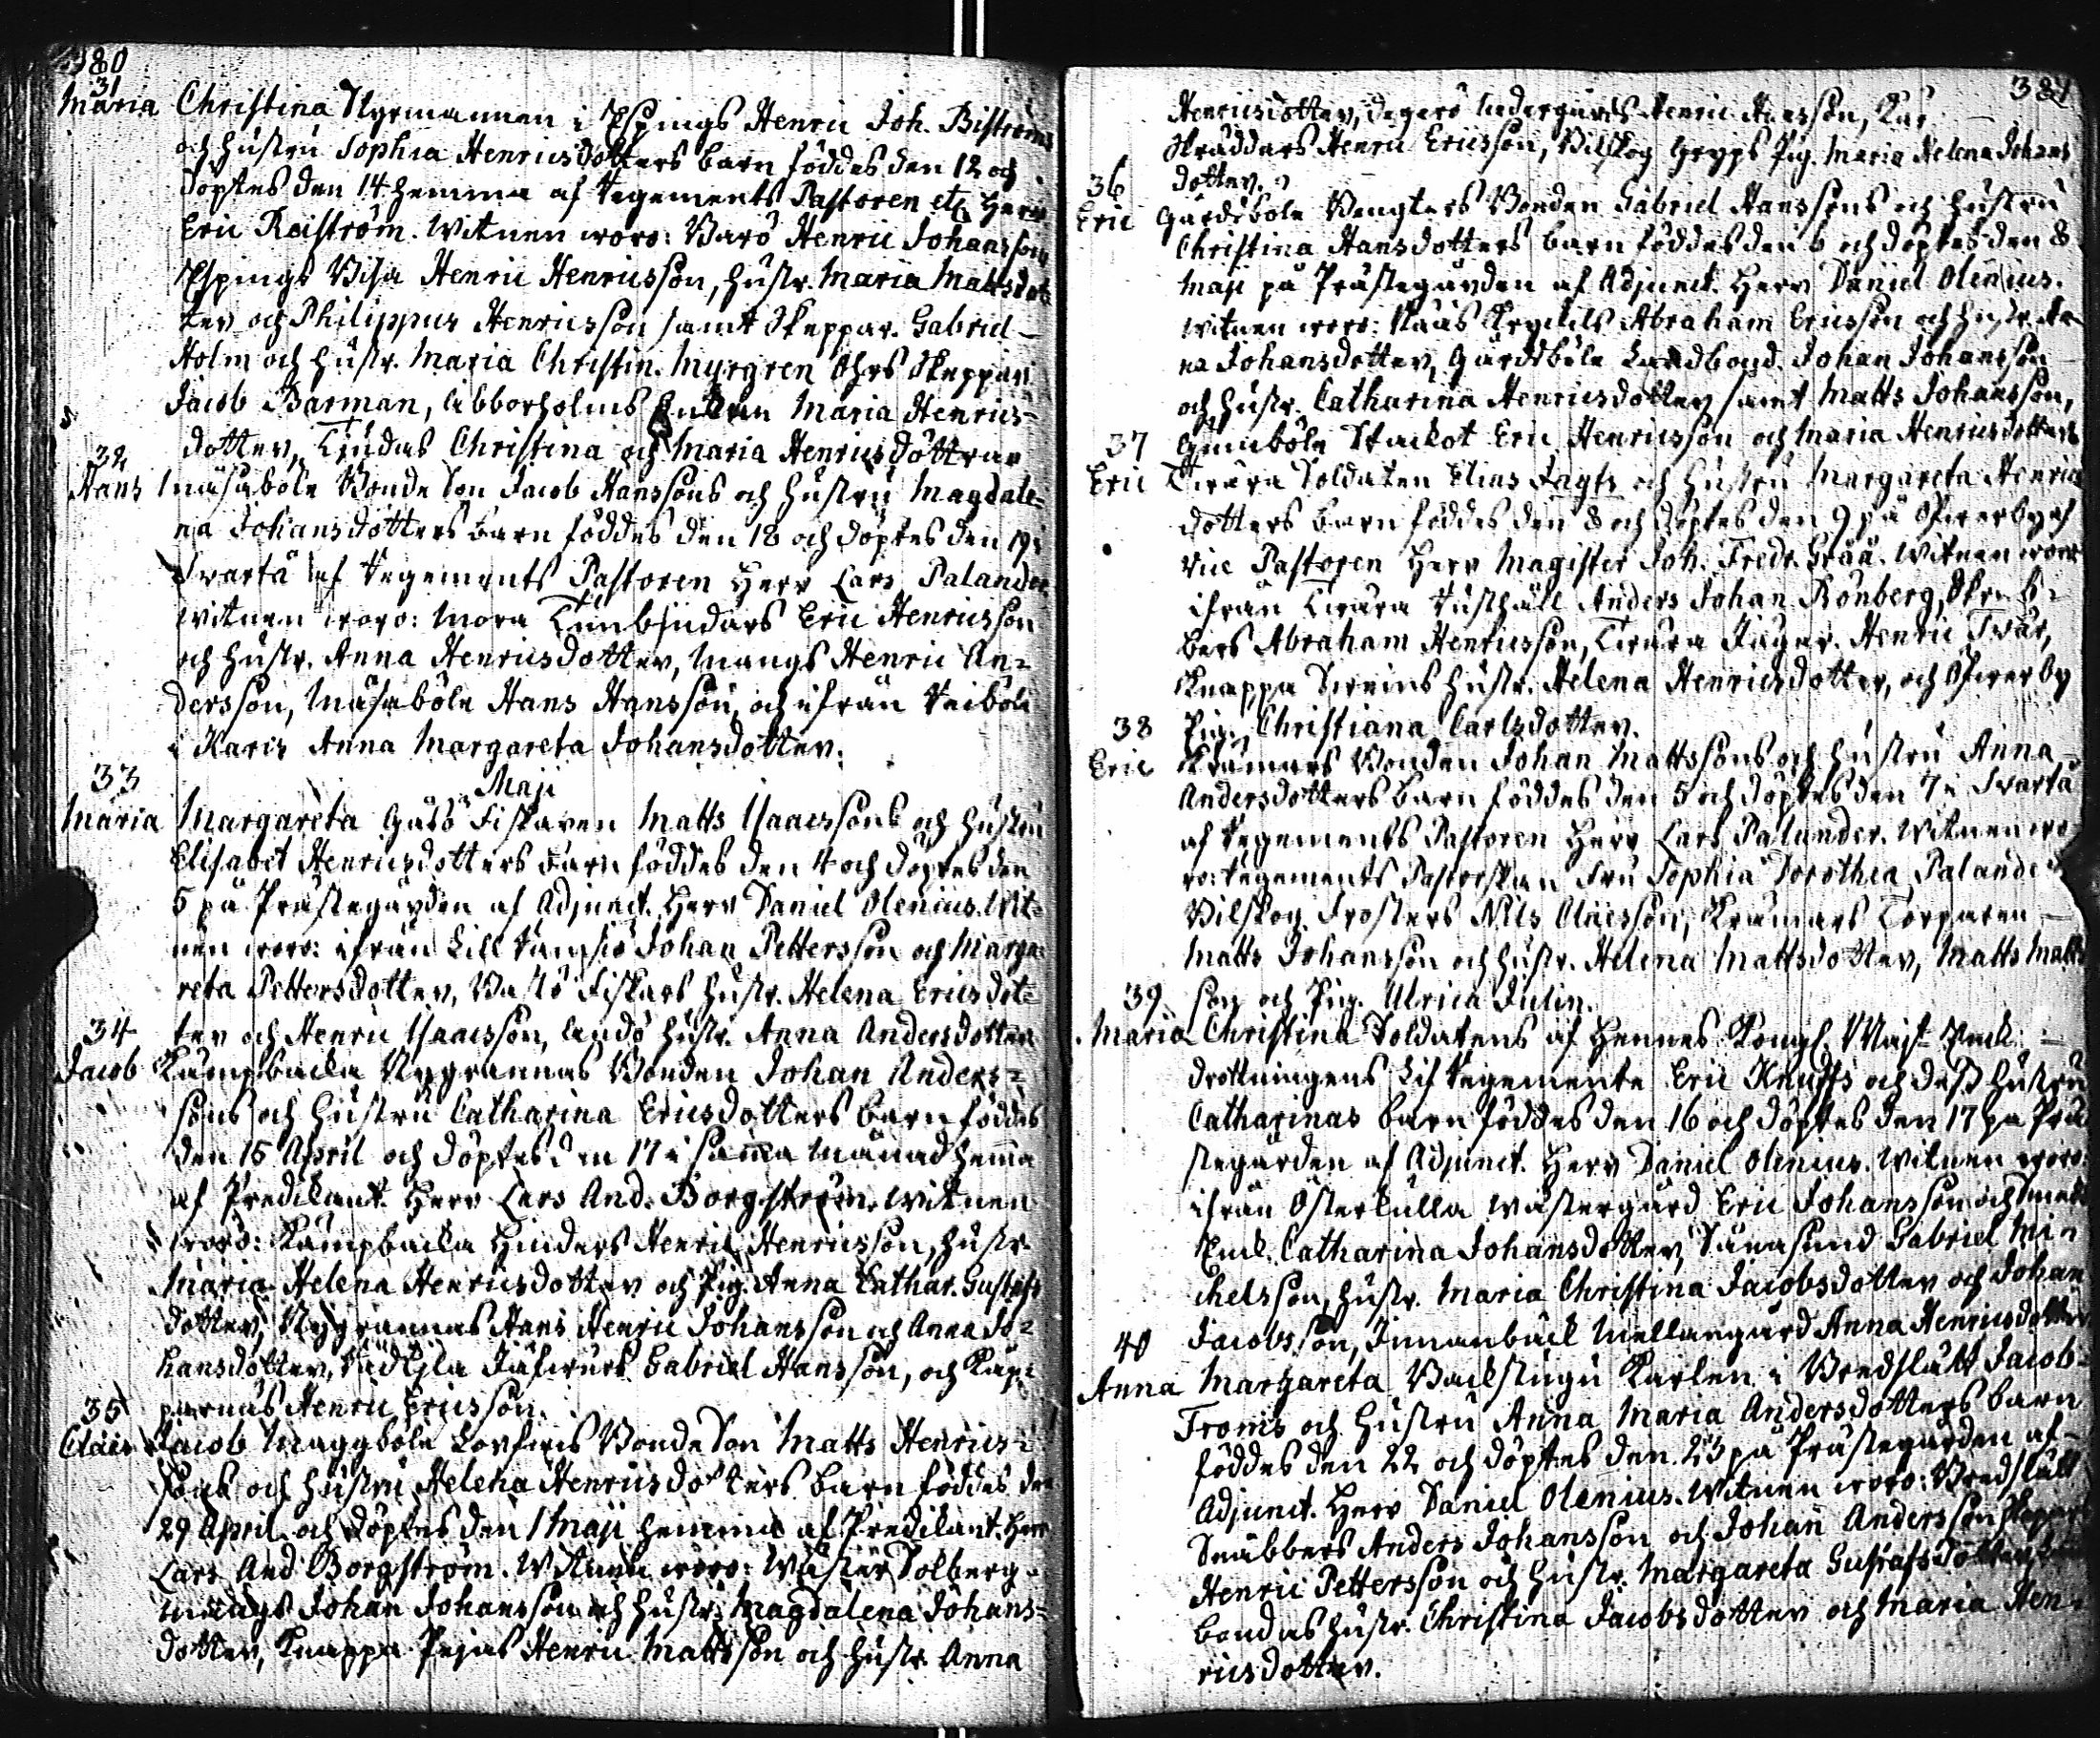 380
31
Maria Christina Styrmannen i Espings Henric Joh. Biströms
och hustru Sophia Henricsdotters barn föddes den 12 och
döptes den 14 hemma af Regements Pastoren etc Herr
Eric Reiström. Witnen woro: Barö Henric Johansson
Espings Henric Henricsson, hustr. Maria Mattsdot-
ter och Philippus Henricsson samt Skeppar. Gabriel
Holm och hustr. Maria Christin. Myrgren Skeppar
Jacob Barman, Abborholms Maria Henrics-
dotter, Lindas Christina och Maria Henricsdöttrar
32
Hans Måsaböle Bonde Son Jacob Hanssons och hustru Magdale-
na Johansdotters barn föddes den 18 och döptes den 19 i
Svartå af Regements Pastoren Herr Lars Palander
witnen woro: Mora Eric Henricsson
och hustr. Anna Henricsdotter, Mangs Henric An-
dersson, Måsaböle Hans Hansson, och ifrån
i Karis Anna Margareta Johansdotter.
Maji
33
Maria Margareta Gåsö Fiskaren Matts Isaacssons och hustru
Elisabet Henricsdotters barn föddes den 4 och döptes den
5 på Prästegården af Adjunct. Herr Daniel Olenius. Wit-
nen woro: ifrån Lill Ramsiö Johan Pettersson och Marga-
reta Pettersdotter, Bastö Fiskars hustr. Helena Ericsdot-
ter och Henric Isaacsson, hustr. Anna Andersdotter
34
Jacob Kämpbacka Nygrannas Bonden Johan Anders-
sons och hustru Catharina Ericsdotters barn föddes
den 15 April och döptes den 17 i samma månad hemma
af Predikant. Herr Lars And. Borgström. Witnen
woro: Kämpbacka Hinders Henric Henricsson, hustr.
Maria Helena Henricsdotter och Pig. Anna Cathar. Gustafs
dotter, Nygrannas Hans Henric Johansson och Anna Jo-
hansdotter, Gabriel Hansson, och
Henric Ericsson.
35
Claës Jacob Maggböle Bonde Son Matts Henrics-
sons och hustru Helena Henricsdotters barn föddes den
29 April och döptes den 1 Maji hemma af Predikant. Herr
Lars And Borgström. Witnen woro: Wäster Solberg
Johan Johansson och hustr. Magdalena Johans-
dotter, Knappa Henric Mattsson och hustr. Anna
381
Henricsdotter, Degerö Nedergårds Henric Hansson,
Skrädders Henric Ericsson, Billskog Pig. Maria Helena Johans
dotter.
36
Eric Gårdsböle Bengters Bonden Gabriel Hanssons och hustru
Christina Hansdotters barn föddes den 6 och döptes den 8
Maji på Prästegården af Adjunct. Herr Daniel Olenius.
Witnen woro: Abraham Ericsson och hustr. An-
na Johansdotter, Gårdsböle Landbond. Johan Johansson
och hustr. Catharina Henricsdotter samt Matts Johansson,
Gunnböle Eric Henricsson och Maria Henricsdotter
37
Eric Soldaten Elias Fagts och hustru Margareta Henrics
dotters barn föddes den 8 och döptes den 9 på Öfwerby af
Vice Pastoren Herr Magister Joh. Fredr. Gråå. Witnen woro
ifrån Anders Johan Rönberg,
Abraham Henricsson, Henric Twär,
Knappa Sweins hustr. Helena Henricsdotter, och Öfwerby
Pig. Christiana Carlsdotter.
38
Eric Krämars Bonden Johan Mattssons och hustru Anna
Andersdotters barn föddes den 5 och döptes den 7 i Svartå
af Regements Pastoren Herr Lars Palander. Witnen wo-
ro: Regements Pastorskan Fru Sophia Dorothea Palander
Billskog Frosters Nils Claësson, Krämars Torparen
Matts Johansson och hustr. Helena Mattsdotter, Matts Matts
son och Pig. Ulrica Julin.
39
Maria Christina Soldatens af Hennes Kongl. Majt
drottningens Lif Regemente Eric Knapps och dess hustru
Catharinas barn föddes den 16 och döptes den 17 på Prä
stegården af Adjunct. Herr Daniel Olenius. Witnen woro:
ifrån Österkulla Wästergård Eric Johansson och
Catharina Johansdotter, Gabriel Mi-
chelsson, hustr. Maria Christina Jacobsdotter och Johan
Jacobsson, Finnanback Mellangård Anna Henricsdotter
40
Anna Margareta Backstugu Karlen i Bredslätt Jacob
Froms och hustru Anna Maria Andersdotters barn
föddes den 22 och döptes den 23 på Prästegården af
Adjunct. Herr Daniel Olenius. Witnen woro: Bredslätt
Snäbbers Anders Johansson och Johan Andersson
Henric Pettersson och hustr. Margareta Gustafsdotter,
bondas hustr. Christina Jacobsdotter och Maria Hen-
ricsdotter.